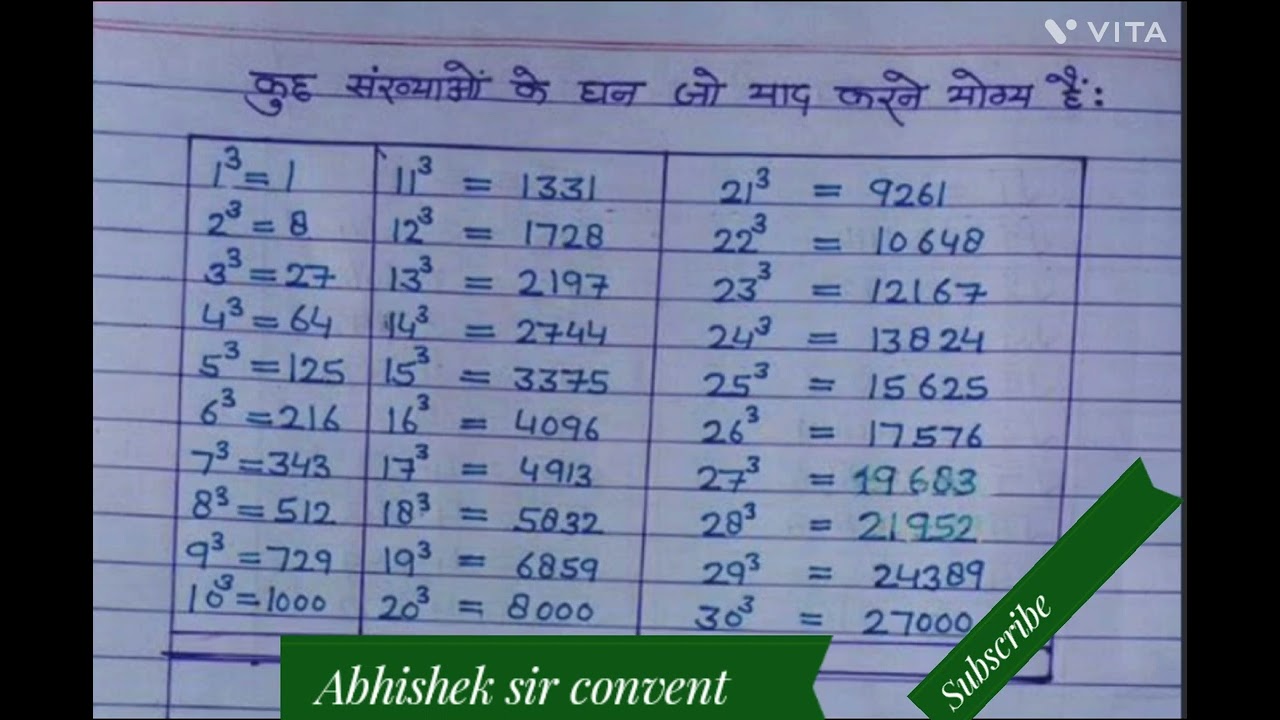 VITA
कुछ संख्याओं के घन जो याद करने योग्य हैं:
1³ = 1 11³ = 1331 21³ = 9261
2³ = 8 12³ = 1728 22³ = 10648
3³ = 27 13³ = 2197 23³ = 12167
4³ = 64 14³ = 2744 24³ = 13824
5³ = 125 15³ = 3375 25³ = 15625
6³ = 216 16³ = 4096 26³ = 17576
7³ = 343 17³ = 4913 27³ = 19683
8³ = 512 18³ = 5832 28³ = 21952
9³ = 729 19³ = 6859 29³ = 24389
10³ = 1000 20³ = 8000 30³ = 27000
Abhishek sir convent
Subscribe